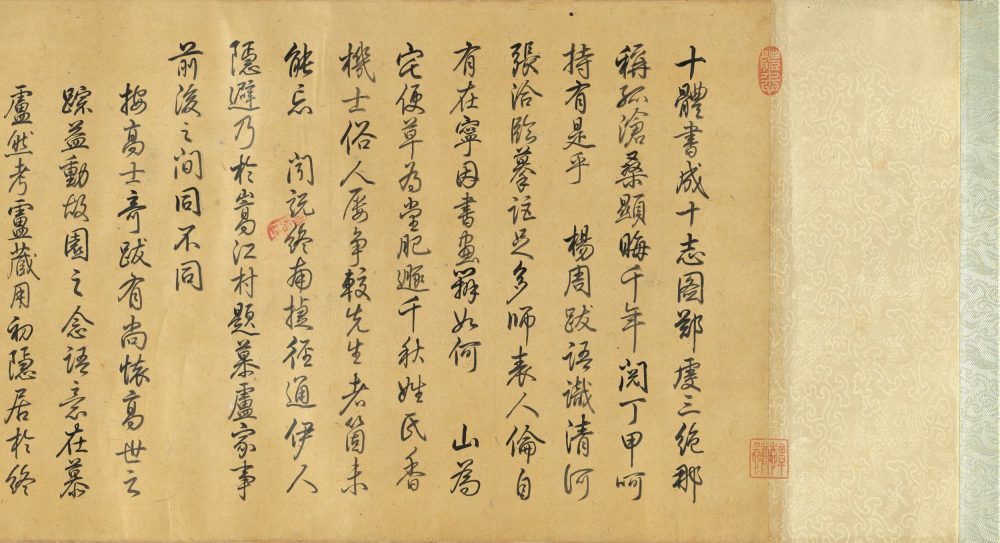 十體書成十志圖鄭虔三絕那
稱孤滄桑顯晦千年閱丁甲呵
持有是乎 楊周跋語識清河
張洽臨摹詎足多師表人倫自
有在寧因書畫辨如何 山為
宅便草為堂肥遯千秋姓氏香
機士俗人屢爭較先生者箇未
能忘 聞說終南捷徑通伊人
隱避乃於嵩江村題慕盧家事
前後之間同不同
按高士奇跋有尚懷高世之
踪益動故園之念語意在慕
盧然考盧藏用初隱居於終